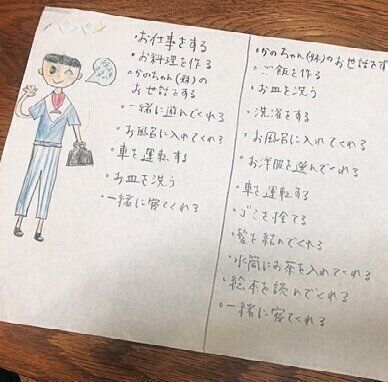 ・お仕事をする
・お料理を作る
・かのちゃん(妹)の
お世話をする
・一緒に遊んでくれる
・お風呂に入れてくれる
・車を運転する
・お皿を洗う
・一緒に寝てくれる
・かのちゃん(妹)のお世話をす
・ご飯を作る
・お皿を洗う
・洗濯をする
・お風呂に入れてくれる
・お洋服を選んでくれる
・車を運転する
・ゴミを捨てる
・髪を結んでくれる
・水筒にお茶を入れてくれる
・絵本を読んでくれる
・一緒に寝てくれる